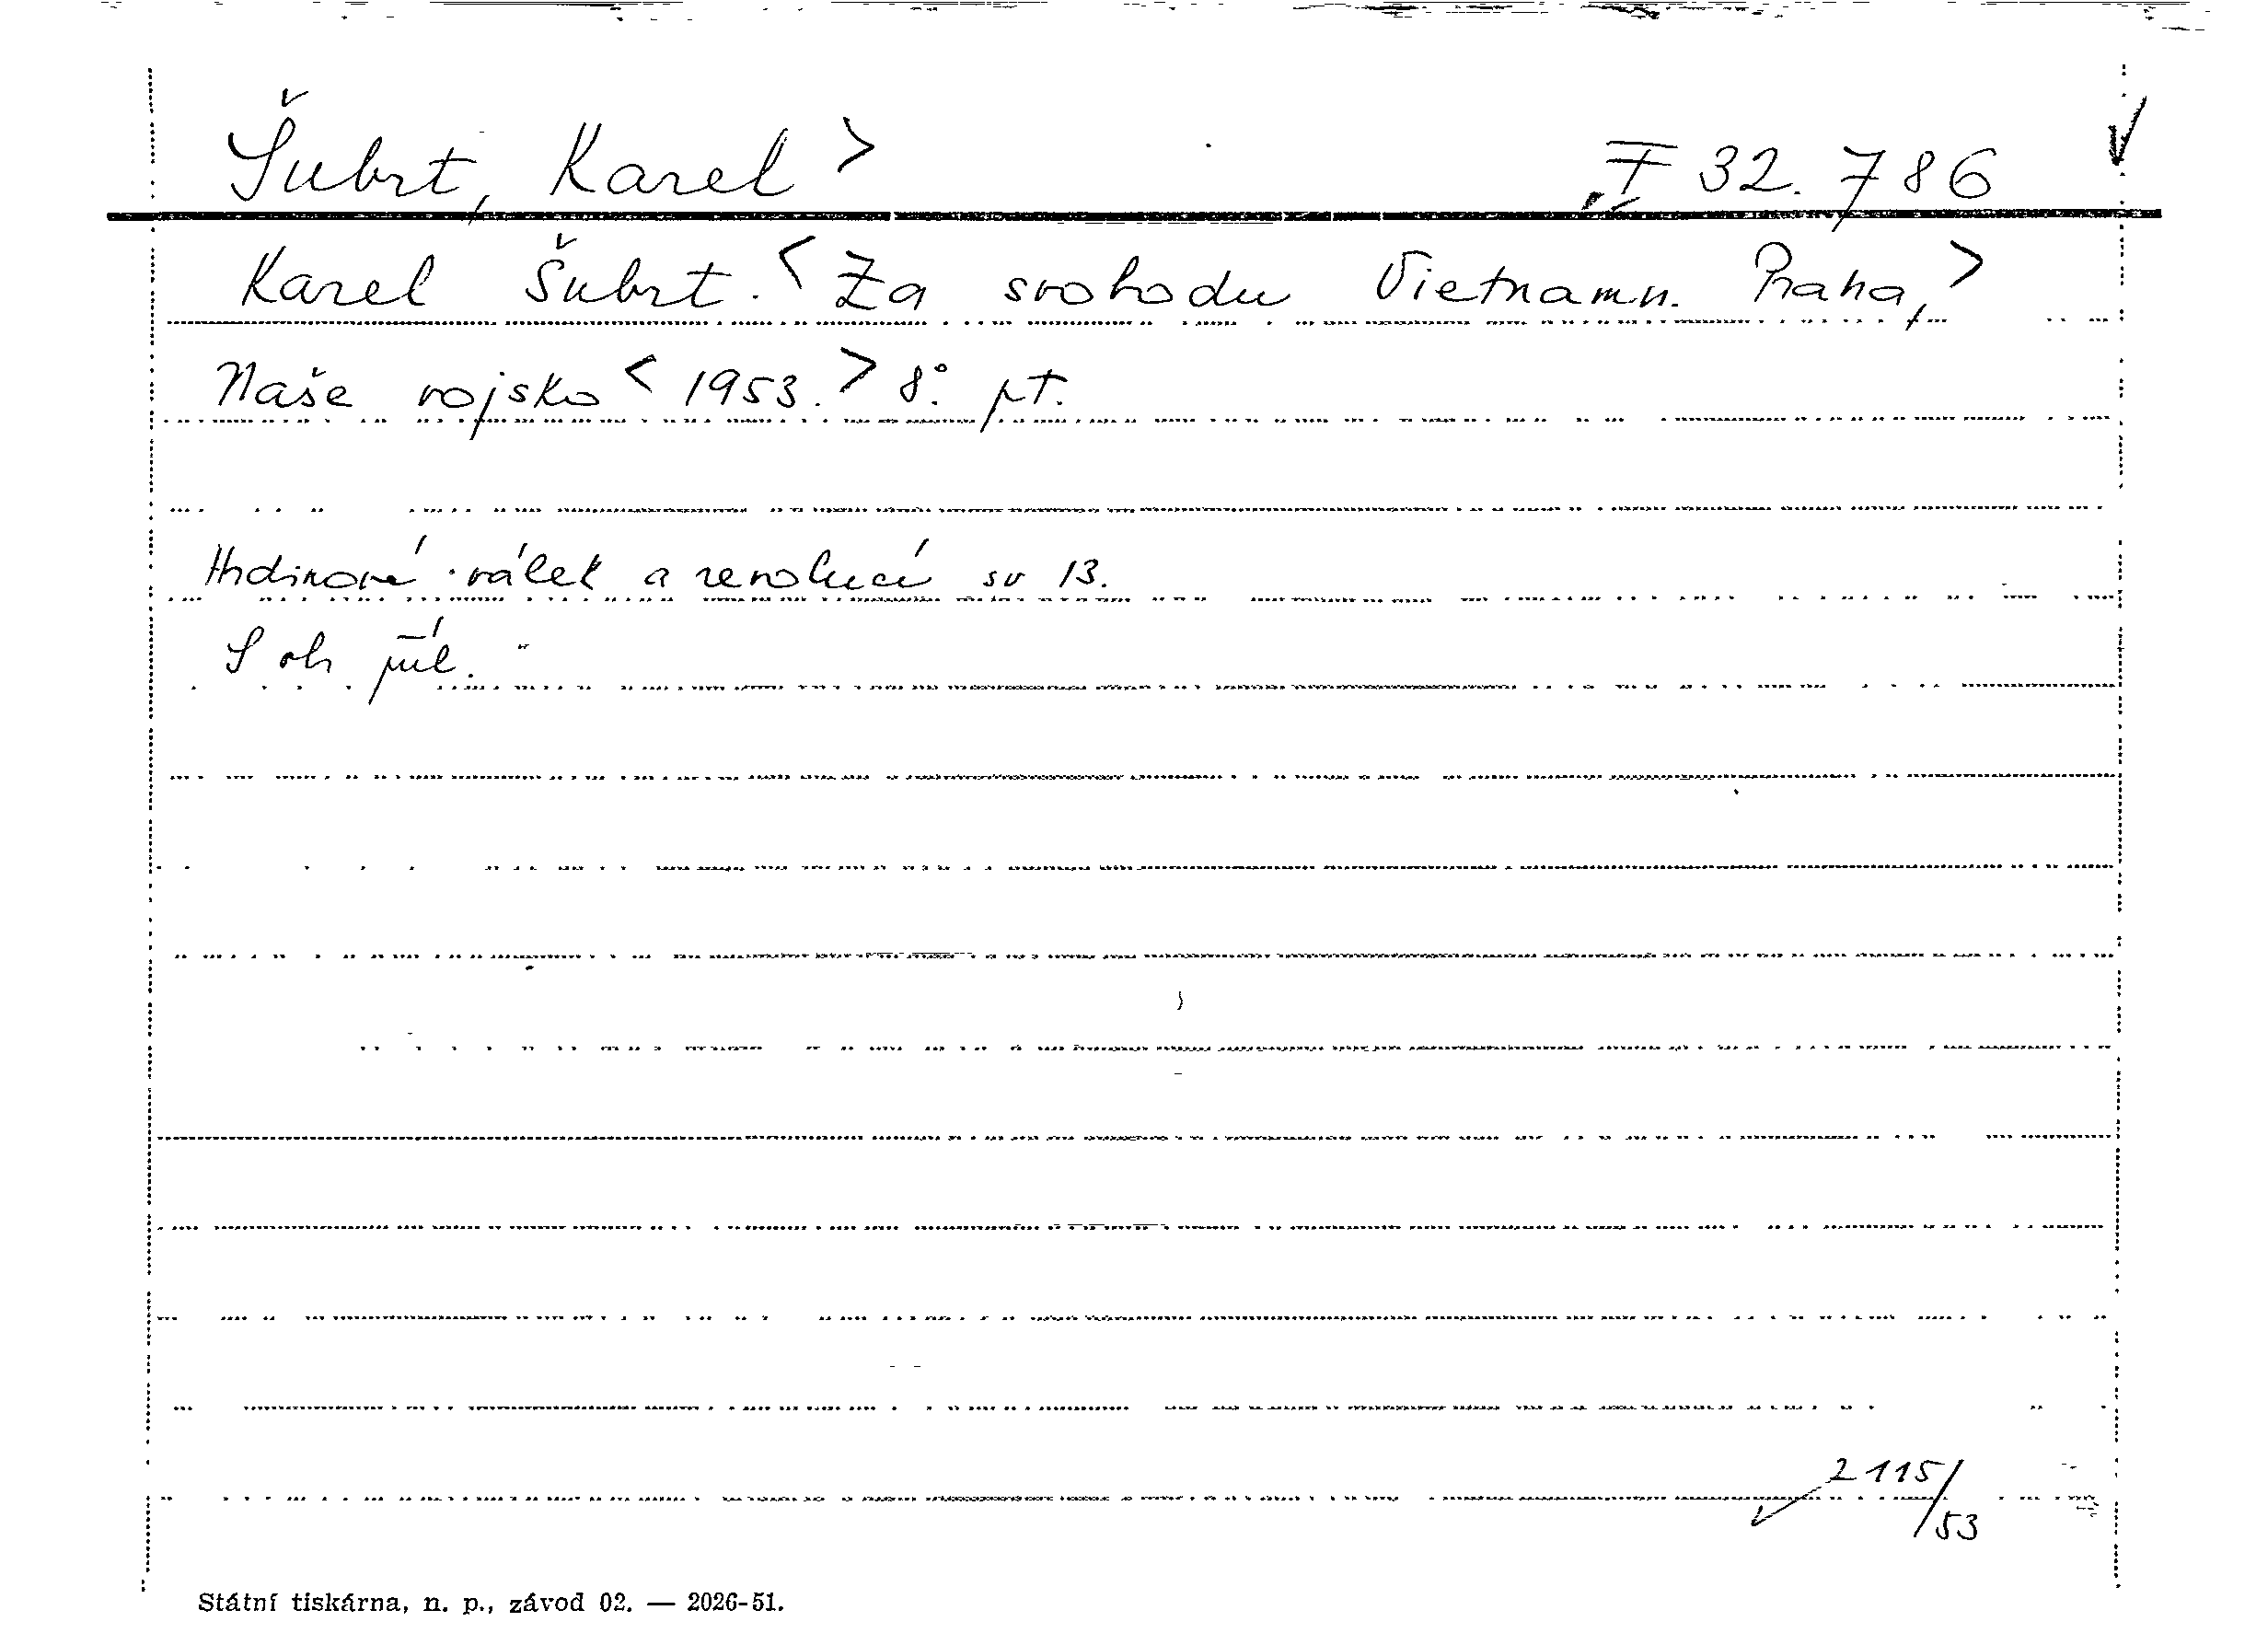 Šubrt, Karel > I 32.786
Karel Šubrt. < Za svobodu Vietnamu. Praha, >
Naše vojsko < 1953. > 8°. pt.
Hrdinové válek a revolucí sv 13.
S ob příl.
2115/53
Státní tiskárna, n. p., závod 02. — 2026-51.